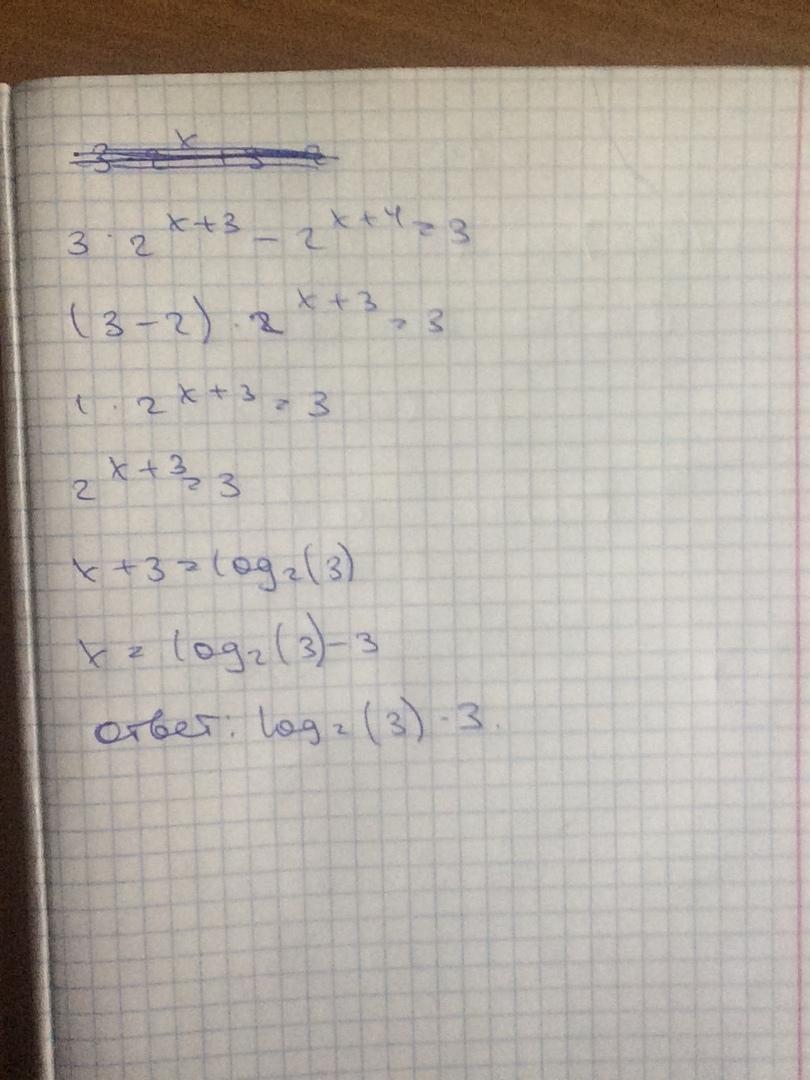 3 · 2^{x+3} - 2^{x+4} = 3
(3-2) · 2^{x+3} = 3
1 · 2^{x+3} = 3
2^{x+3} = 3
x + 3 = log₂(3)
x = log₂(3) - 3
Ответ: log₂(3) - 3.